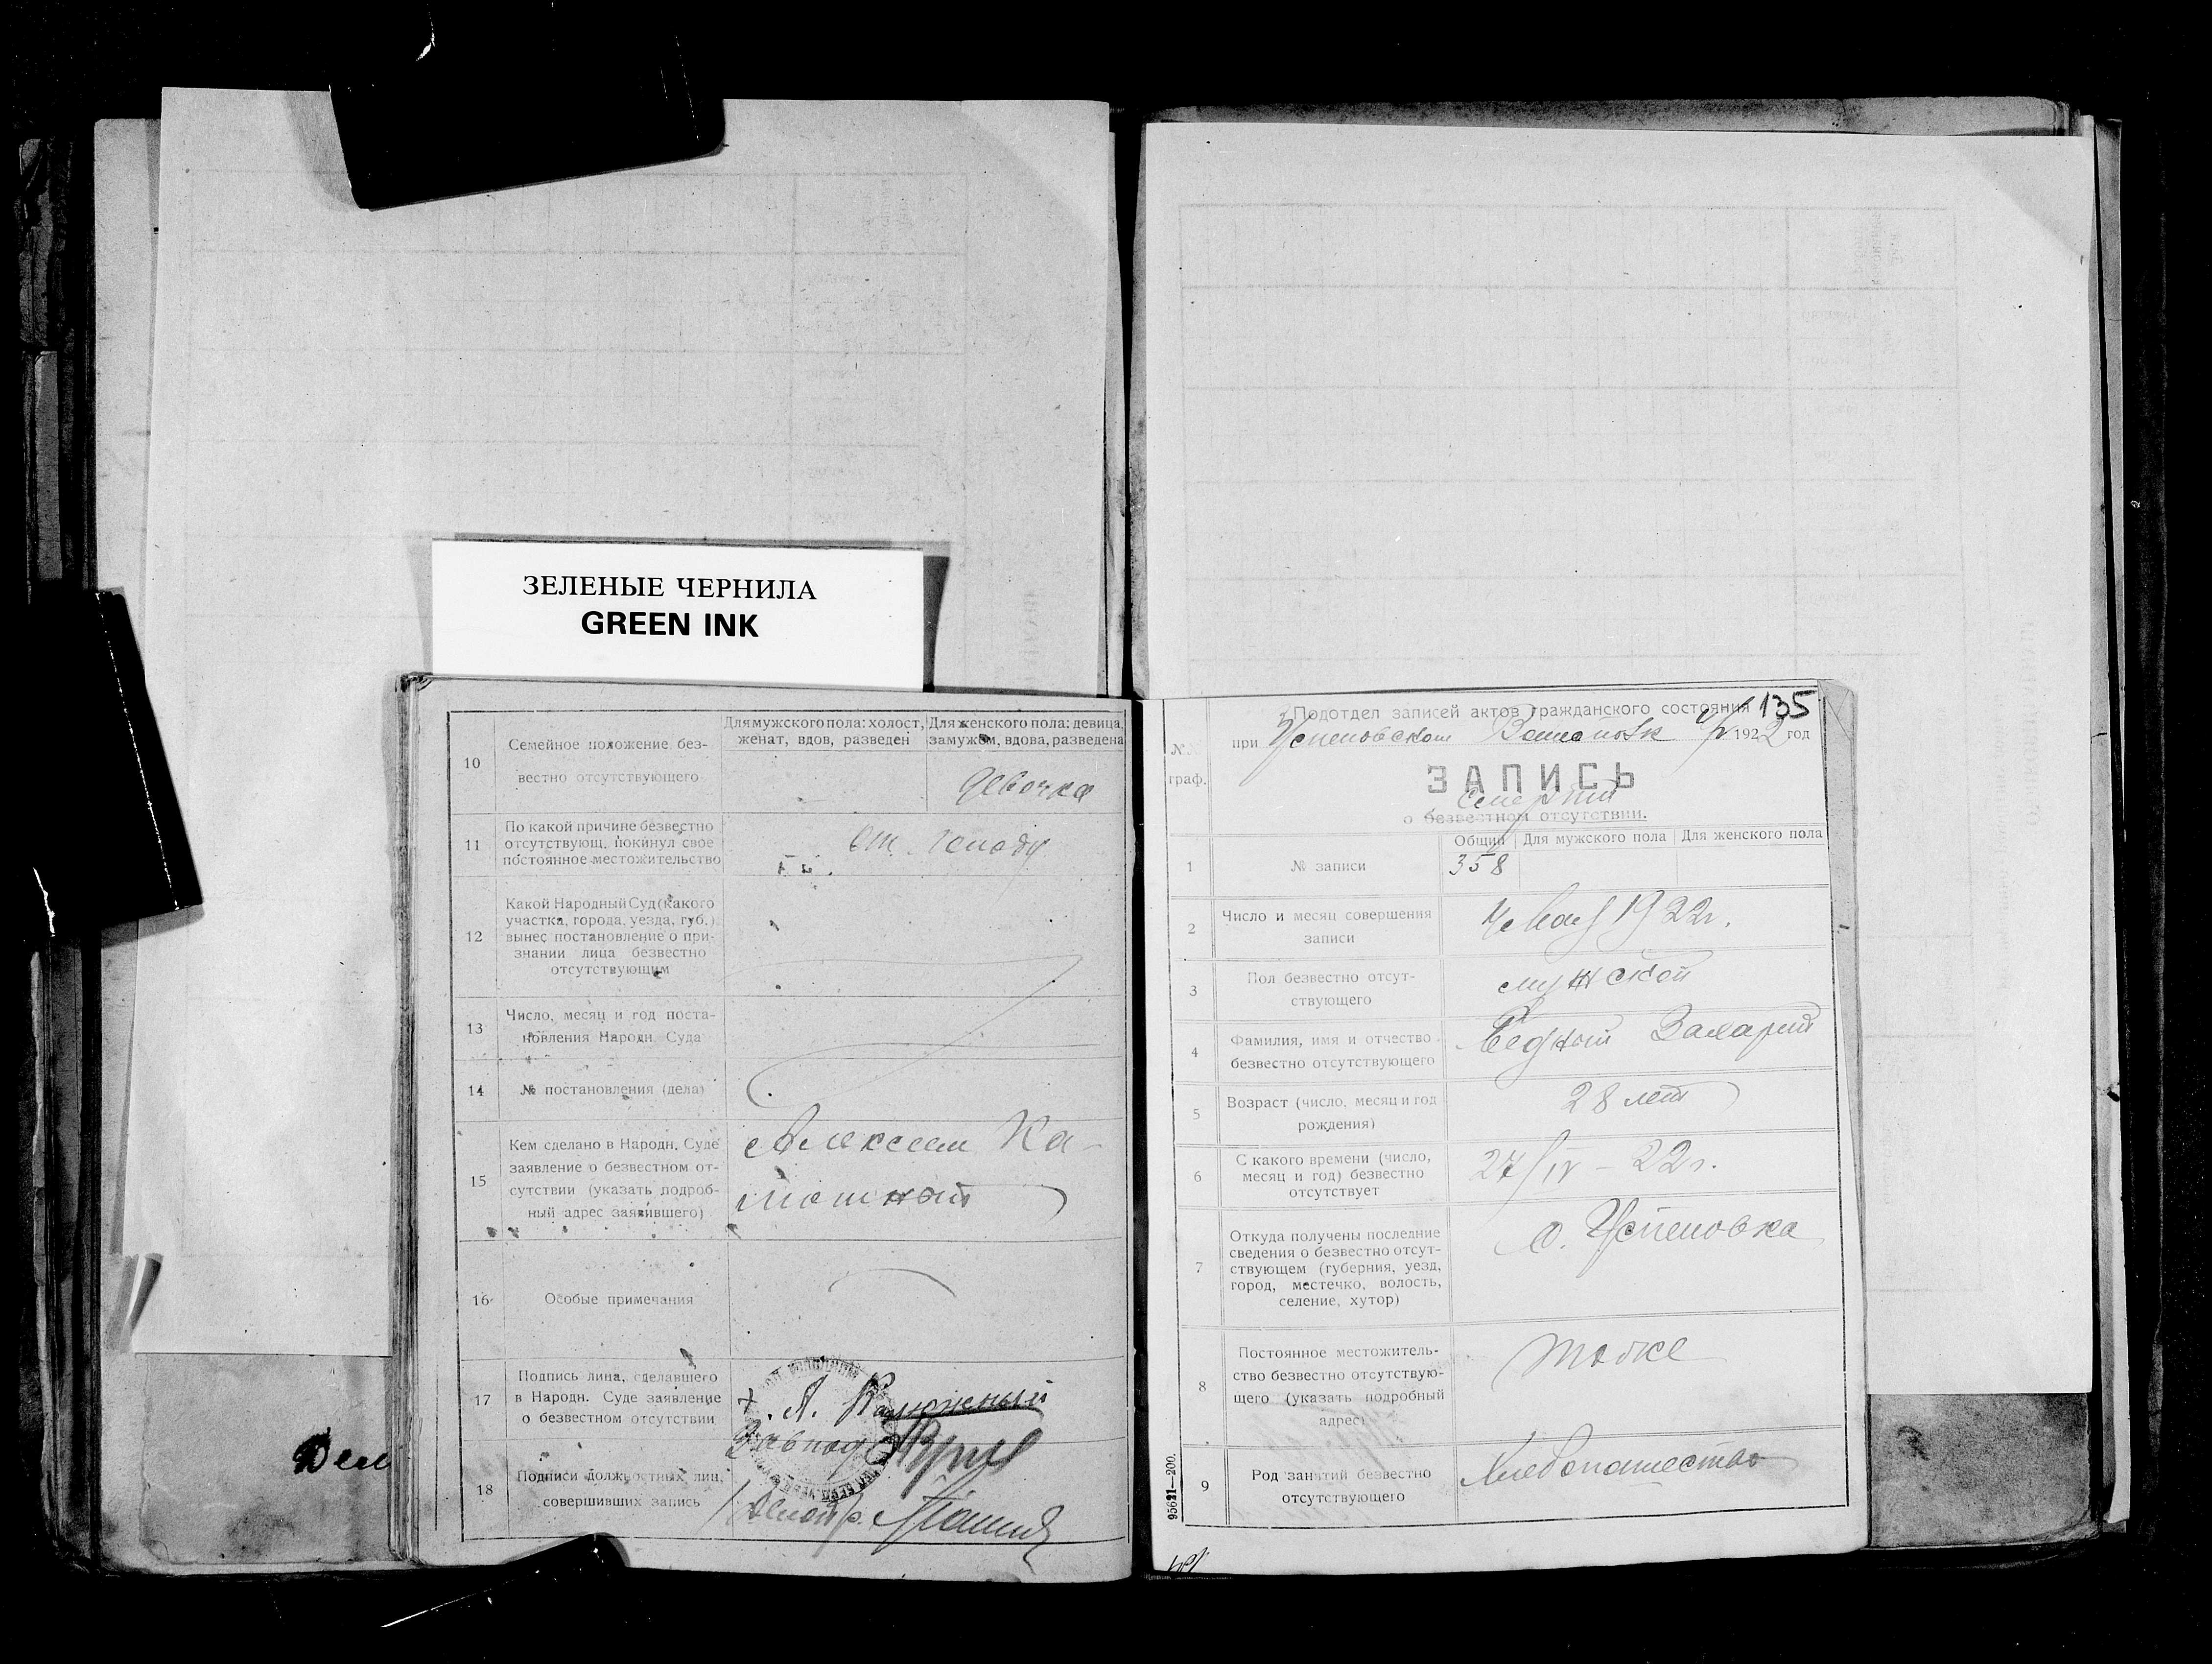 ЗЕЛЕНЫЕ ЧЕРНИЛА
GREEN INK
10
Семейное положение без-
вестно отсутствующего
Для мужского пола: холост,
женат, вдов, разведен
Для женского пола: девица,
замужем, вдова, разведена
девочка
11
По какой причине безвестно
отсутствующ. покинул свое
постоянное местожительство
от голоду
12
Какой Народный Суд (какого
участка, города, уезда, губ.)
вынес постановление о при-
знании лица безвестно
отсутствующим
13
Число, месяц и год поста-
новления Народн. Суда
14
№ постановления (дела)
15
Кем сделано в Народн. Суде
заявление о безвестном от-
сутствии (указать подроб-
ный адрес заявившего)
Алексеем Ка-
16
Особые примечания
17
Подпись лица, сделавшего
в Народн. Суде заявление
о безвестном отсутствии
А. Калюжный
18
Подписи должностных лиц,
совершивших запись
Завпод
Делопр.
Дел
135
Подотдел записей актов гражданского состояния
при Успеновском 1922 год
№№
граф.
ЗАПИСЬ
смерти
о безвестном отсутствии.
Общий
Для мужского пола
Для женского пола
1
№ записи
358
2
Число и месяц совершения
записи
4 Мая 1922г.
3
Пол безвестно отсут-
ствующего
мужской
4
Фамилия, имя и отчество
безвестно отсутствующего
Бедный Захарий
5
Возраст (число, месяц и год
рождения)
28 лет
6
С какого времени (число,
месяц и год) безвестно
отсутствует
27/IV - 22г.
7
Откуда получены последние
сведения о безвестно отсут-
ствующем (губерния, уезд,
город, местечко, волость,
селение, хутор)
с. Успеновка
8
Постоянное местожитель-
ство безвестно отсутствую-
щего (указать подробный
адрес)
тоже
9
Род занятий безвестно
отсутствующего
Хлебопашество
95621—200.